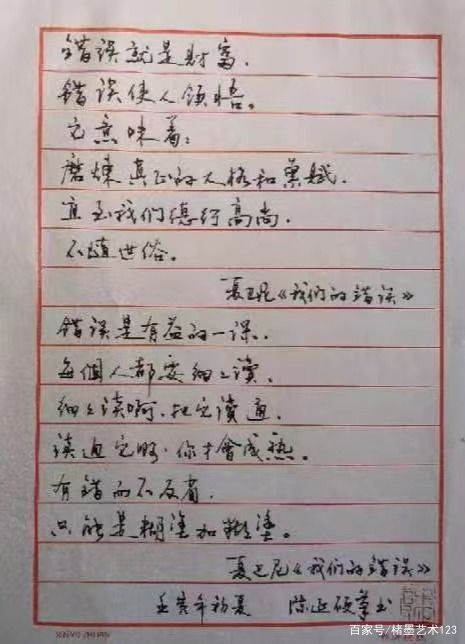 错误就是财富.
错误使人领悟。
它意味着:
磨煉真正的人格和禀赋.
直到我们德行高尚.
不随世俗。
《我们的错误》
错误是有益的一课.
每個人都要细々读.
细々读啊.把它读通.
读通它 你才會成熟。
有错而不反省.
只能是糊塗加糊塗。
《我们的错误》
壬寅年初夏 陈 书
百家号/楮墨艺术123